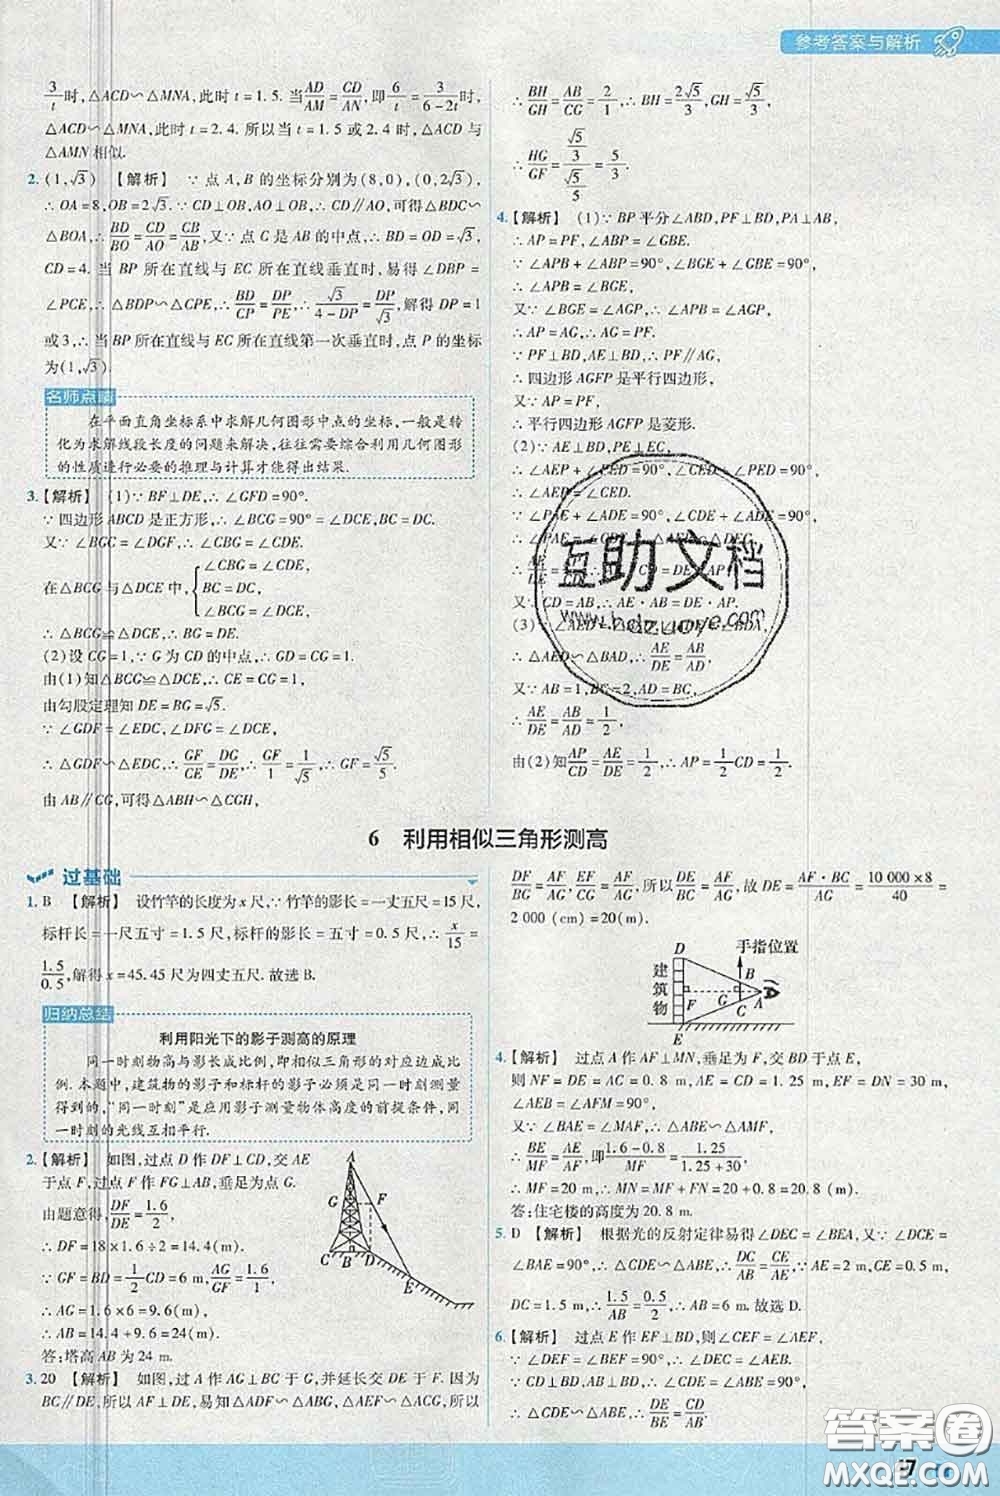 参考答案与解析
3/t时,△ACD∽△MNA,此时 t=1.5. 当AD/AM=CD/AN,即6/t=3/(6-2t)时,
△ACD∽△MNA,此时 t=2.4. 所以当 t=1.5 或 2.4 时,△ACD 与
△AMN 相似.
2. (1,√3) 【解析】 ∵点 A,B 的坐标分别为(8,0),(0,2√3),
∴OA=8,OB=2√3. ∵CD⊥OB,AO⊥OB,∴CD∥AO,可得△BDC∽
△BOA,∴BD/BO=CD/AO=CB/AB,又∵点 C 是 AB 的中点,∴BD=OD=√3,
CD=4. 当 BP 所在直线与 EC 所在直线垂直时,易得∠DBP=
∠PCE,∴△BDP∽△CPE,∴BD/CP=DP/PE,∴√3/(4-DP)=DP/√3,解得 DP=1
或3,∴当 BP所在直线与 EC所在直线第一次垂直时,点 P 的坐标
为(1,√3).
名师点睛
在平面直角坐标系中求解几何图形中点的坐标,一般是转
化为求解线段长度的问题来解决,往往需要综合利用几何图形
的性质进行必要的推理与计算才能得出结果.
3.【解析】 (1)∵BF⊥DE,∴∠GFD=90°.
∵四边形 ABCD 是正方形,∴∠BCG=90°=∠DCE,BC=DC.
又∵∠BGC=∠DGF,∴∠CBG=∠CDE.
在△BCG与△DCE中,{∠CBG=∠CDE,
BC=DC,
∠BCG=∠DCE,
∴△BCG≌△DCE,∴BG=DE.
(2)设 CG=1,∵G 为 CD 的中点,∴GD=CG=1.
由(1)知△BCG≌△DCE,∴CE=CG=1.
由勾股定理知 DE=BG=√5.
∵∠GDF=∠EDC,∠DFG=∠DCE,
∴△GDF∽△EDC,∴GF/CE=DG/DE,∴GF/1=1/√5,∴GF=√5/5.
由 AB∥CG,可得△ABH∽△CGH,
∴BH/GH=AB/CG=2/1,∴BH=2√5/3,GH=√5/3,
∴HG/GF=(√5/3)/(√5/5)=5/3.
4.【解析】 (1)∵BP平分∠ABD,PF⊥BD,PA⊥AB,
∴AP=PF,∠ABP=∠GBE.
∵∠APB+∠ABP=90°,∠BGE+∠GBE=90°,
∴∠APB=∠BGE,
又∵∠BGE=∠AGP,∴∠APB=∠AGP,
∴AP=AG,∴AG=PF.
∵PF⊥BD,AE⊥BD,∴PF∥AG,
∴四边形AGFP是平行四边形,
又∵AP=AG,
∴平行四边形AGFP是菱形.
(2)∵AE⊥BD,PE⊥EC,
∴∠AEP+∠PED=90°,∠CED+∠PED=90°,
∴∠AEP=∠CED.
∵∠PAE+∠ADE=90°,∠CDE+∠ADE=90°,
∴∠PAE=∠CDE,∴△AEP∽△DEC,
又∵CD=AB,∴AE·AB=DE·AP.
∴△AED∽△BAD,∴AE/DE=AB/AD,
又∵AB=1,BC=2,AD=BC,
∴AE/DE=AB/AD=1/2,
由(2)知AP/CD=AE/DE=1/2,∴AP=1/2CD=1/2.
互助文档
www.hdzuoye.com
6 利用相似三角形测高
过基础
1. B 【解析】 设竹竿的长度为 x 尺,∵竹竿的影长=一丈五尺=15尺,
标杆长=一尺五寸=1.5尺,标杆的影长=五寸=0.5尺,∴x/15=
1.5/0.5,解得 x=45. 45 尺为四丈五尺. 故选 B.
归纳总结
利用阳光下的影子测高的原理
同一时刻物高与影长成比例,即相似三角形的对应边成比
例. 本题中,建筑物的影子和标杆的影子必须是同一时刻测量
得到的,“同一时刻”是应用影子测量物体高度的前提条件,同
一时刻的光线互相平行.
2.【解析】 如图,过点 D 作 DF⊥CD,交 AE
于点 F,过点 F 作 FG⊥AB,垂足为点G.
由题意得,DF/DE=1.6/2,
∴DF=18×1.6÷2=14.4(m).
∵GF=BD=1/2CD=6 m,AG/GF=1.6/1,
∴AG=1.6×6=9.6(m).
∴AB=14.4+9.6=24(m).
答:塔高 AB 为 24 m.
A
G
F
C
B
D
E
3. 20 【解析】 如图,过 A 作 AG⊥BC 于 G,并延长交 DE 于 F. 因为
BC∥DE,所以 AF⊥DE,易得△ABG∽△ADF,△ACG∽△AEF,所以
DF/BG=AF/AG,EF/CG=AF/AG,所以DE/BC=AF/AG,故 DE=AF·BC/AG=10 000×8/40=
2 000 (cm)=20(m).
D
手指位置
建筑物
B
F
G
A
C
E
4.【解析】 过点 A 作 AF⊥MN,垂足为 F,交 BD 于点 E,
则 NF=DE=AC=0.8 m,AE=CD=1.25 m,EF=DN=30 m,
∠AEB=∠AFM=90°,
又∵∠BAE=∠MAF,∴△ABE∽△AMF,
∴BE/MF=AE/AF,即(1.6-0.8)/MF=1.25/(1.25+30),
∴MF=20 m,∴MN=MF+FN=20+0.8=20.8(m).
答:住宅楼的高度为 20.8 m.
5. D 【解析】 根据光的反射定律易得∠DEC=∠BEA,又∵∠DCE=
∠BAE=90°,∴△CDE∽△ABE,∴DC/AB=CE/AE,∵AE=2 m,CE=0.5 m,
DC=1.5 m,∴1.5/AB=0.5/2,∴AB=6 m. 故选 D.
6.【解析】 过点 E 作 EF⊥BD,则∠CEF=∠AEF,
∵∠DEF=∠BEF=90°,∴∠DEC=∠BEA,
又∵∠CDE=∠ABE=90°,
∴△CDE∽△ABE,∴DE/BE=CD/AB,
答案圈
MXQE.COM